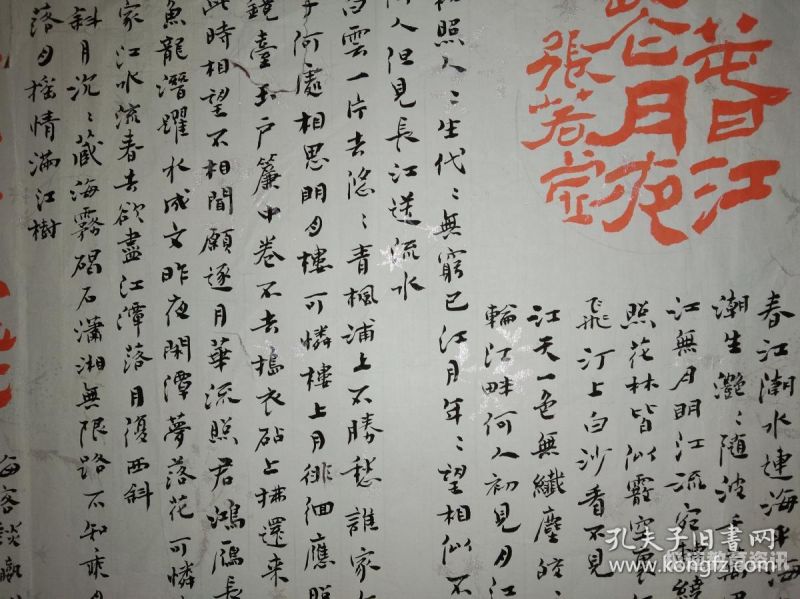 春江
花月夜
張若虛
春江潮水連海平海
潮生灩〻随波千萬
江無月明江流宛轉繞
照花林皆似霰空裏
飛汀上白沙看不見
江天一色無纖塵皎〻
輪江畔何人初見月江
初照人〻生代〻無窮已江月年〻望相似不
何人但見長江送流水
白雲一片去悠〻青楓浦上不勝愁誰家
子何處相思明月樓可憐樓上月徘徊應照
鏡臺玉戶簾中卷不去搗衣砧上拂還来
此時相望不相聞願逐月華流照君鴻雁長
魚龍潛躍水成文昨夜閑潭夢落花可憐
家江水流春去欲盡江潭落月復西斜
斜月沉〻藏海霧碣石瀟湘無限路不知乘月
落月摇情滿江樹
海客談瀛
孔夫子旧书网
www.kongfz.com